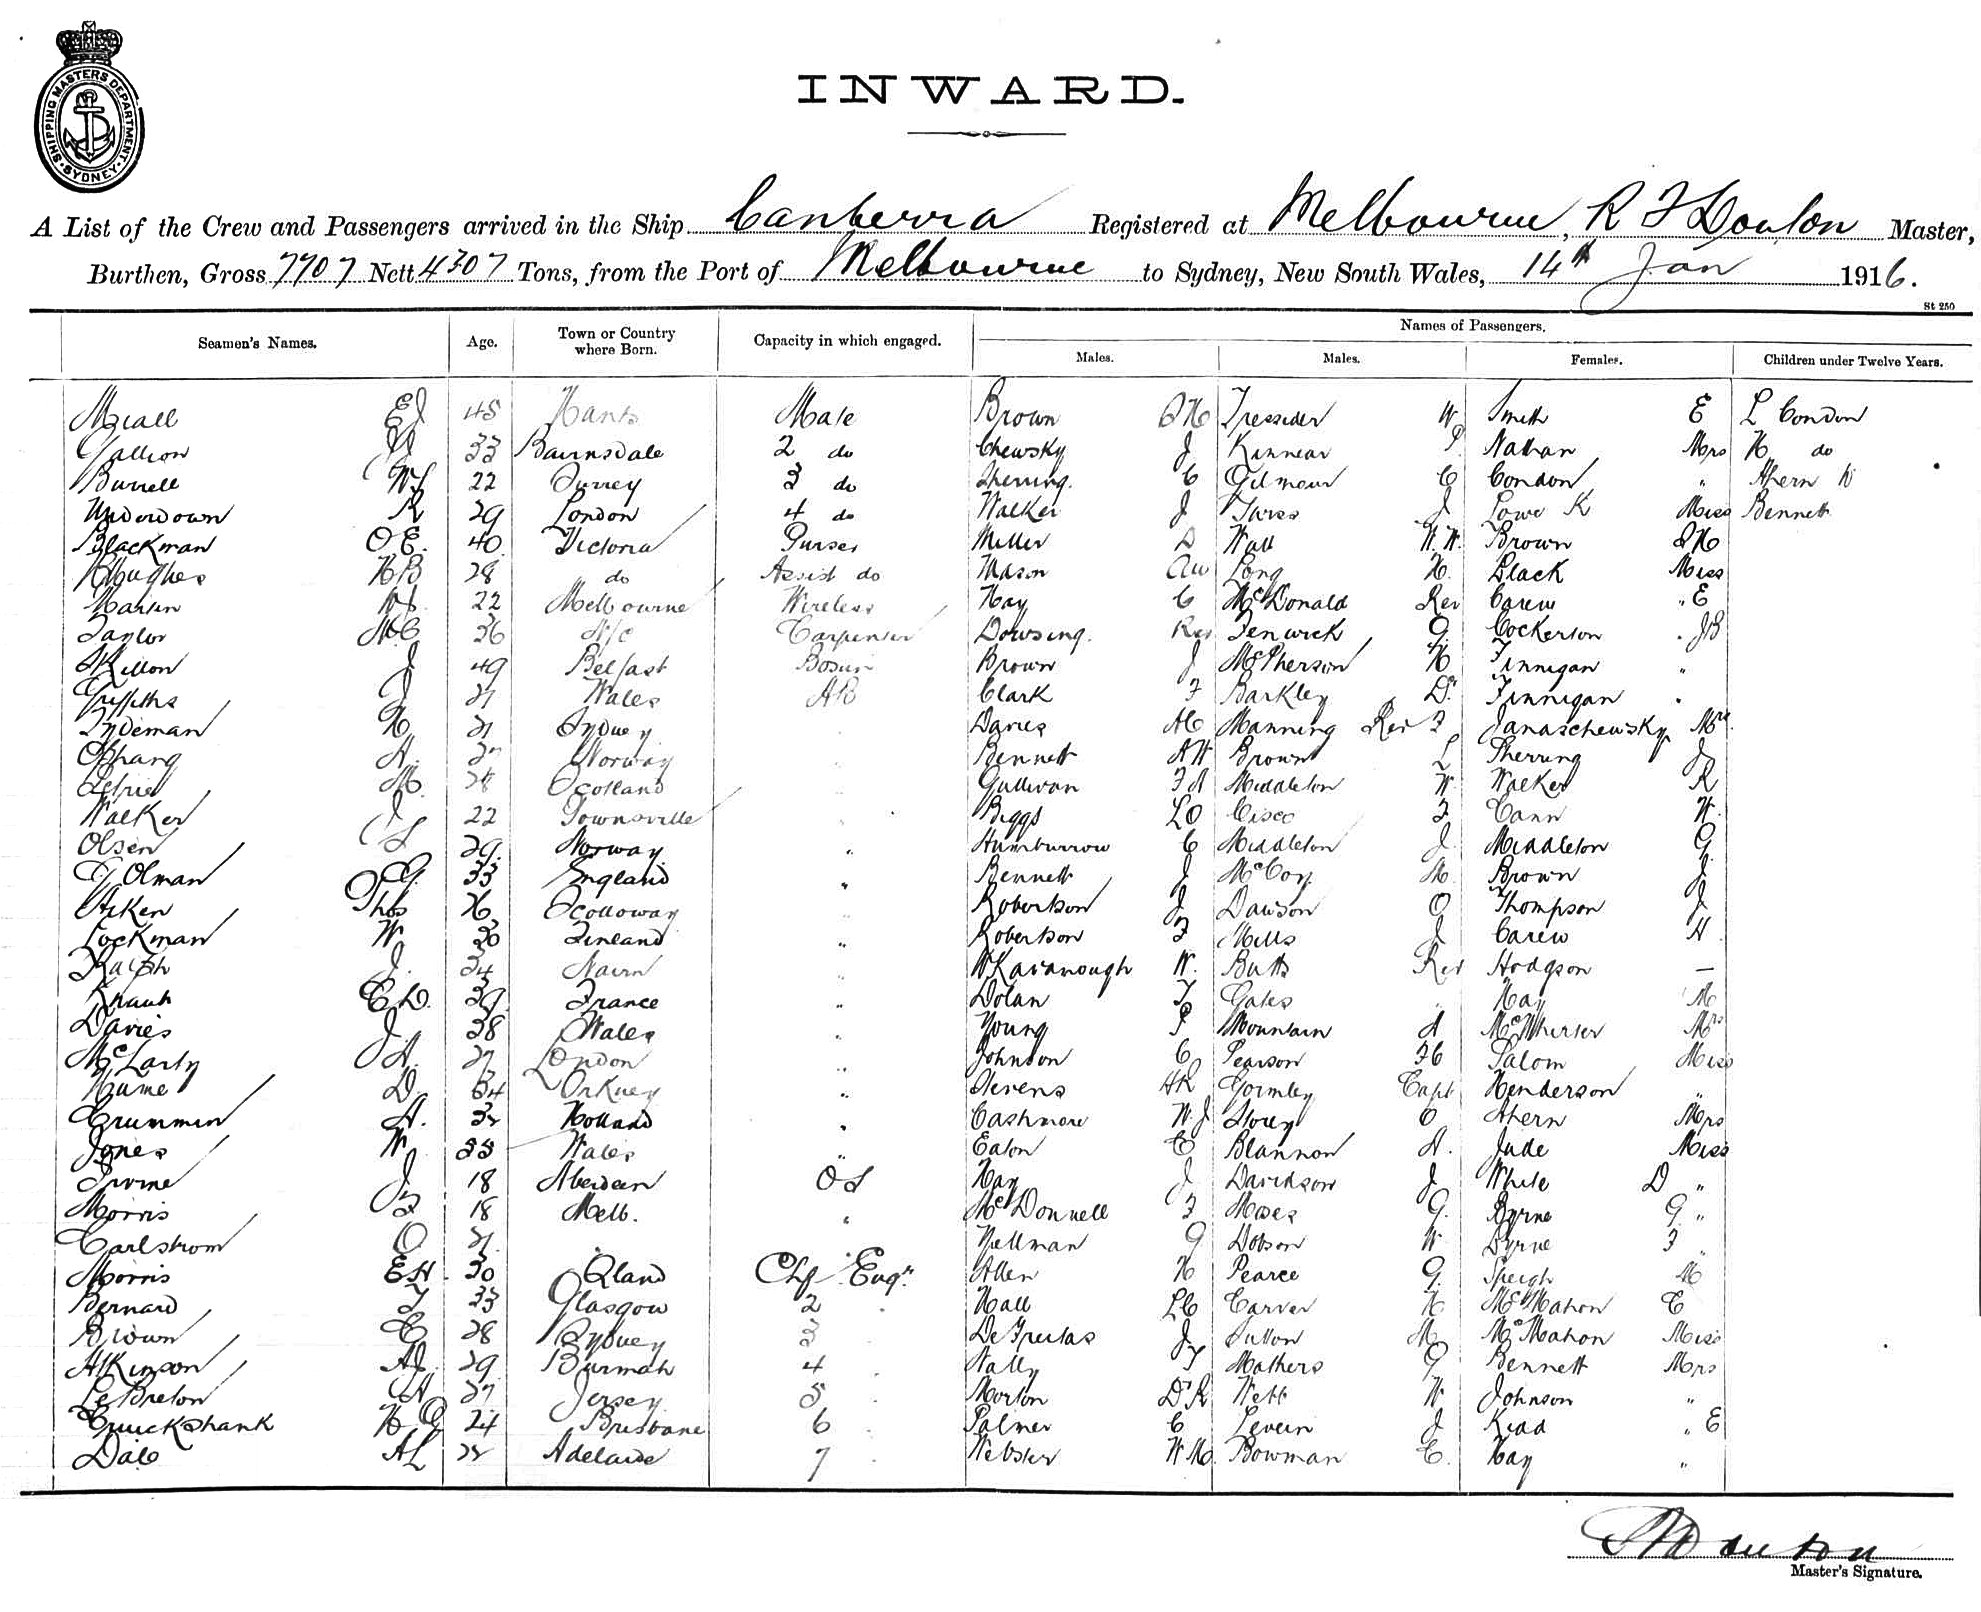 SHIPPING MASTERS DEPARTMENT SYDNEY
INWARD.
A List of the Crew and Passengers arrived in the Ship Canberra Registered at Melbourne, R F Doulon Master,
Burthen, Gross 7707 Nett 4307 Tons, from the Port of Melbourne to Sydney, New South Wales, 14th Jan 1916.
St 250
Seamen's Names. Age. Town or Country where Born. Capacity in which engaged. Names of Passengers.
Males. Males. Females. Children under Twelve Years.
Miall EJ 45 Hants Mate Brown Tressider W Smith E L Condon
Gallion 33 Bairnsdale 2 do Chewsky J Kinnear P Nathan Mrs H do
Burrell 22 Surrey 3 do Sherring. C Gilmour C Condon " Ahern
Underdown R 29 London 4 do Walker J Swiss J Lowe K Miss Bennett
Blackman O E. 40 Victoria Purser Miller D Wall W.W. Brown
Hughes HB 28 do Assist do Mason AW Long H. Black Miss
Martin 22 Melbourne Wireless Hay C McDonald Rev Carew " E
Taylor 36 N/C Carpenter Dowsing. Rev Fenwick G. Cockerton " JB
Skillon J 49 Belfast Bosun Brown J McPherson H Finnigan "
Griffiths J 21 Wales AB Clark F Barkley Dr. Finnigan "
Tydeman H 21 Sydney Davies AC Manning Rev F Janaschewsky Mrs.
A. 27 Norway Bennett AH Brown L Sherring J
M. 28 Scotland Gullivan FA Middleton W. Walker R
Walker J 22 Townsville Biggs LO Cisco F Cann W.
Olsen S 29 Norway Humburrow C Middleton J. Middleton G.
Olman G. 33 England " Bennett J McCoy M. Brown J
Aiken Thos 26 Scolloway " Robertson J Dawson O Thompson J
Lockman W 30 Finland " Robertson F Mills J Carew A
Ralph J. 34 Nairn " Kavanough W. Butts Rev Hodgson —
E D. 39 France " Dolan T Gates " Hay M
Davies J. 38 Wales " Young P Mountain A McWhirter Mrs
McLarty A. 27 London " Johnson C Pearson FC Salom Miss
Hume D. 34 Orkney " Stevens AR Gormley Capt Henderson "
Crummin A. Holland " Cashmore W.J Storey O Ahern Mrs
Jones W. 33 Wales " Eaton E Blannon A. Jude Miss
Irvine J 18 Aberdeen O S Hay J Davidson J White D "
Morris F 18 Melb. " McDonnell F Moses G. Byrne G "
Carlstrom O 21 " " Hellman G Dobson W Byrne F "
Morris EH 30 Qland Chf Engr. Allen H Pearce G. Speigh M
Bernard T 33 Glasgow 2 " Hall LC Carver H McMahon C
Brown C 28 Sydney 3 " De Freitas J Sutton M McMahon Miss
Atkinson AJ. 29 Burmah 4 " Nally T Mathers G Bennett Mrs
Le Breton A 27 Jersey 5 " Morton Dr R Webb W Johnson "
Cruickshank H G 24 Brisbane 6 " Palmer C Levein J Kidd " E
Dale AL Adelaide 7 " Webster W M. Bowman C. Hay "
Master's Signature.